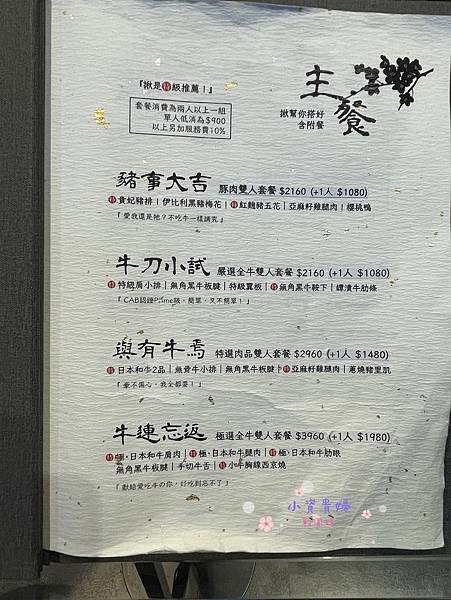 主餐
『揪是特級推薦！』
套餐消費為兩人以上一組
單人低消為$900
以上另加服務費10%
揪幫你搭好
含附餐
豬事大吉 豚肉雙人套餐 $2160 (+1人 $1080)
特貴妃豬排｜伊比利黑豬梅花｜特紅麴豬五花｜亞麻籽雞腿肉｜櫻桃鴨
『愛我還是牠？不吃牛一樣講究』
牛刀小試 嚴選全牛雙人套餐 $2160 (+1人 $1080)
特特級肩小排｜無角黑牛板腱｜特級翼板｜特無角黑牛鞍下｜罈漬牛肋條
『CAB認證Prime級，簡單，又不簡單！』
與有牛焉 特選肉品雙人套餐 $2960 (+1人 $1480)
特日本和牛2品｜無骨牛小排｜無角黑牛板腱｜特亞麻籽雞腿肉｜蔥燒豬里肌
『牽不偏心，我全都要！』
牛連忘返 極選全牛雙人套餐 $3960 (+1人 $1980)
特極·日本和牛肩肉｜特極·日本和牛腿肉｜特極·日本和牛肋眼
無角黑牛板腱｜手切牛舌｜特小牛胸線西京燒
『獻給愛吃牛の你，好吃到忘不了』
小資貴婦